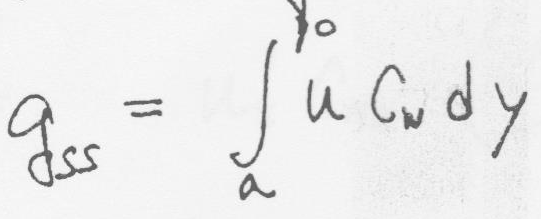 g_ss = ∫_a^{y_0} u C_N dy